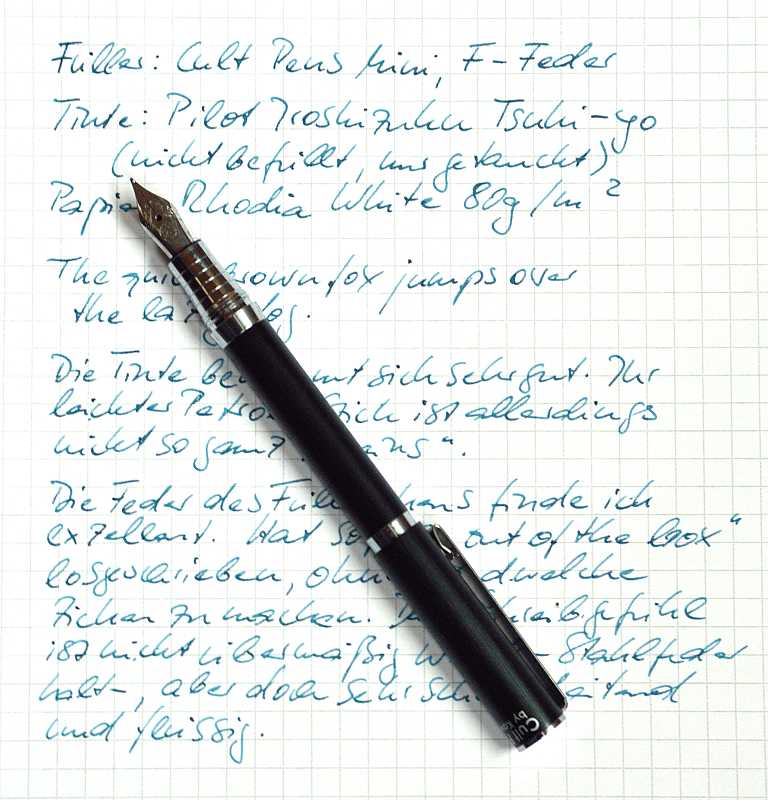 Füller: Cult Pens Mini, F-Feder
Tinte: Pilot Iroshizuku Tsuki-yo
(nicht befüllt, nur getaucht)
Papier Rhodia White 80g/m²
The quick brown fox jumps over
the lazy dog.
Die Tinte be mt sich sehr gut. Ihr
leichter Petrol stich ist allerdings
nicht so ganz ins“.
Die Feder des Füll chens finde ich
exzellent. Hat so out of the box“
losgeschrieben, ohn dwelche
Zicken zu machen. D Schreibgefühl
ist nicht übermäßig w - Stahlfeder
halt-, aber doch sehr sch eitend
und flüssig.
Cult
by